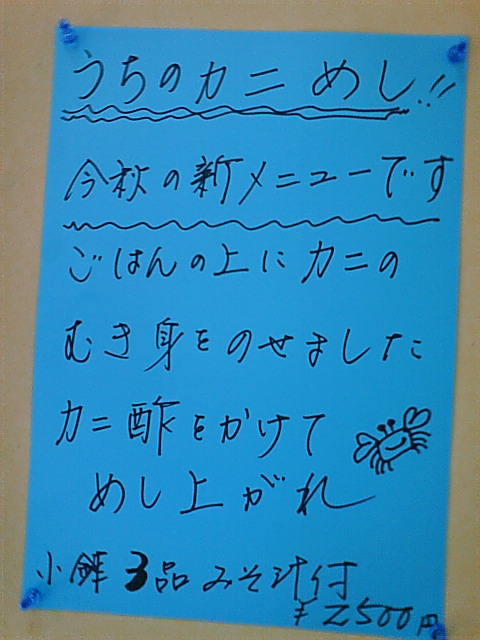 うちのカニめし!!
今秋の新メニューです
ごはんの上にカニの
むき身をのせました
カニ酢をかけて
めし上がれ
小鉢3品みそ汁付
¥2500円